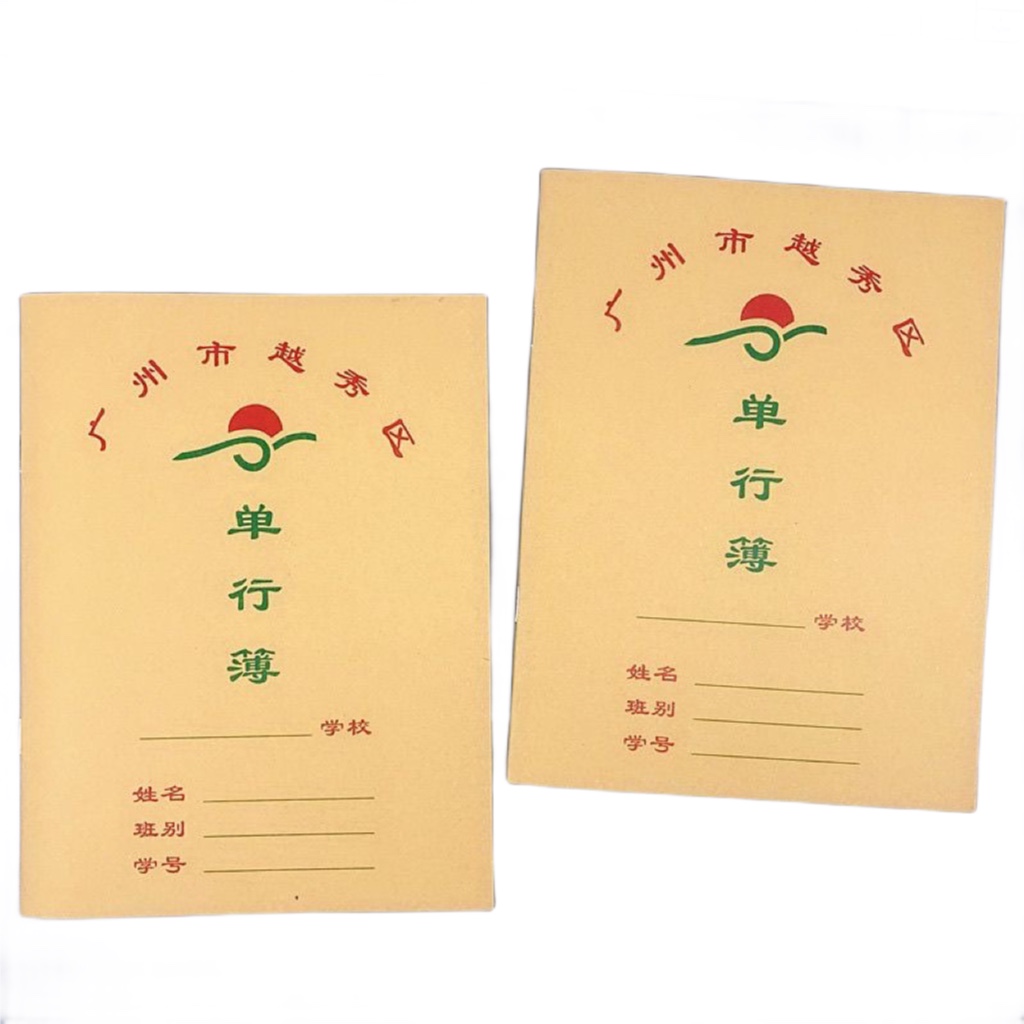 广州市越秀区
单行簿
学校
姓名
班别
学号
广州市越秀区
单行簿
学校
姓名
班别
学号